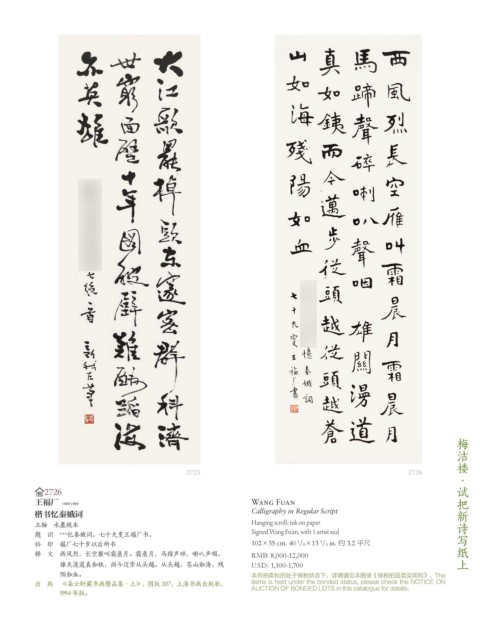 大江歌罷掉頭東邃密群科濟
世窮面壁十年圖破壁難酬蹈海
亦英雄
七絕一首 新我左筆
西風烈長空雁叫霜晨月霜晨月
馬蹄聲碎喇叭聲咽雄關漫道
真如鐵而今邁步從頭越從頭越蒼
山如海殘陽如血
憶秦娥詞
七十九叟王福厂書
2725
2726
梅洁楼·试把新诗写纸上
2726
王福厂 1880-1960
楷书忆秦娥词
立轴 水墨纸本
题 识 ***忆秦娥词。七十九叟王福厂书。
钤 印 福厂七十岁以后所书
释 文 西风烈，长空雁叫霜晨月。霜晨月，马蹄声碎，喇叭声咽。
雄关漫道真如铁，而今迈步从头越。从头越，苍山如海，残
阳如血。
出 版 《朵云轩藏书画精品集·上》，图版307，上海书画出版社，
1994年版。
WANG FUAN
Calligraphy in Regular Script
Hanging scroll; ink on paper
Signed Wang Fuan, with 1 artist seal
102×35 cm. 40 1/8×13 3/4 in. 约3.2平尺
RMB: 8,000-12,000
USD: 1,100-1,700
本件拍卖标的处于保税状态下，详情请见本图录《保税拍品竞买须知》。The
items is held under the bonded status, please check the NOTICE ON
AUCTION OF BONDED LOTS in this catalogue for details.